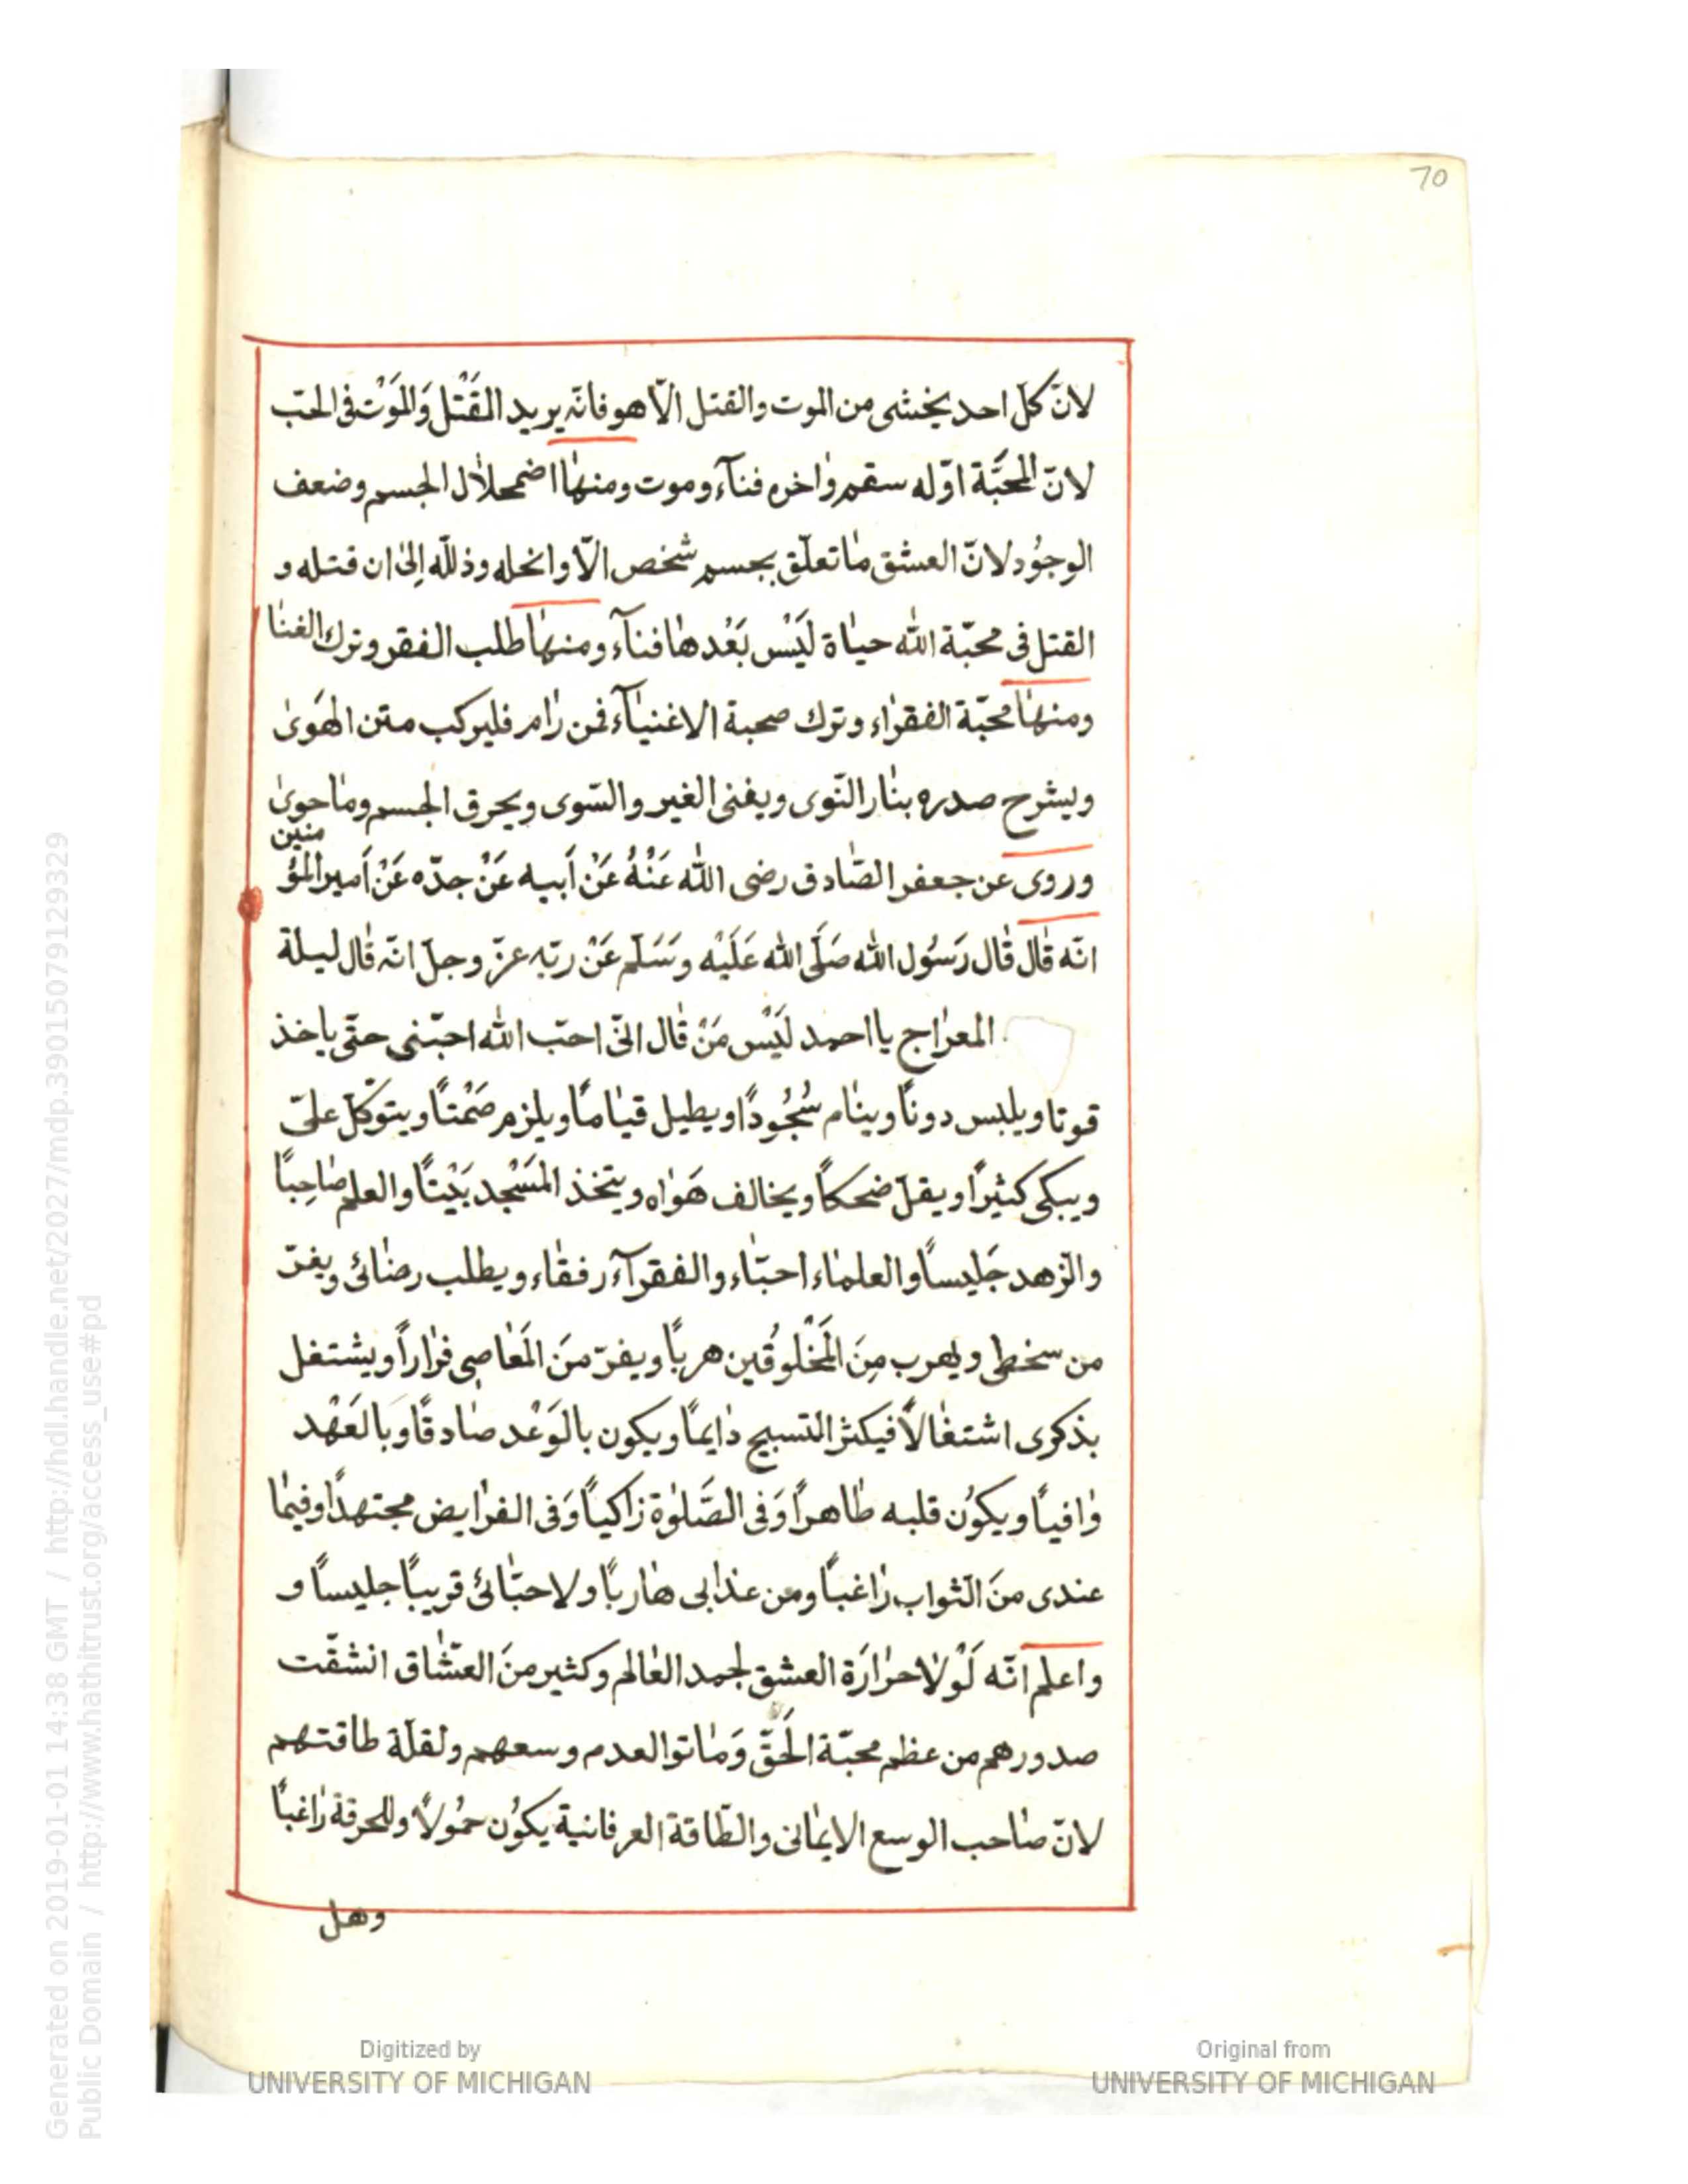 70
لانّ كلّ احد يخشى من الموت والقتل الّا هو فانّه يريد القَتْل وَالمَوْت فى الحبّ
لانّ المحبَّة اوّله سقم واخره فنآء وموت ومنها اضمحلال الجسم وضعف
الوجُود لانّ العشق ما تعلّق بجسم شخص الّا وانحله وذلّله اِلىٰ ان قتله و
القتل فى محبّة الله حياة لَيْس بَعْدها فنآء ومنها طلب الفقر وترك الغنا
ومنها محبّة الفقراء وترك صحبة الاغنيآء فمن رام فليركب متن الهَوىٰ
ويشرح صدره بنار النّوى ويفنى الغير والسّوى ويحرق الجسم وما حوىٰ
وروى عن جعفر الصّادق رضى الله عَنْهُ عَنْ اَبيه عَنْ جدّه عَنْ اَمير المؤمنين
انّه قال قال رَسُول الله صَلَّى الله عَلَيْه وَسَلّم عَنْ ربّه عزّ وجلّ انّه قال ليلة
المعراج يا احمد لَيْس مَنْ قال انّى احبّ الله احبّنى حتّى ياخذ
قوتا ويلبس دونًا وينام سُجُودًا ويطيل قيامًا ويلزم صَمْتًا ويتوكّل علىّ
ويبكى كثيرًا ويقلّ ضحكًا ويخالف هَواه ويتّخذ المَسْجد بَيْتًا والعلم صاحِبًا
والزّهد جَليسًا والعلماء احبّاء والفقرآء رفقاء ويطلب رضائى ويفرّ
من سخطى ويهرب مِنَ المَخْلوُقين هربًا ويفرّ منَ المَعاصى فرارًا ويشتغل
بذكرى اشتغالًا فيكثر التسبيح دايمًا ويكون بالوَعْد صادقًا وبالعَهْد
وافيًا ويكُون قلبه طاهرًا وَفى الصَّلوٰة زاكيًا وَفى الفرايض مجتهدًا وفيما
عندى منَ الثواب راغبًا ومن عذابى هاربًا ولاحبّائى قريبًا جليسًا و
واعلم انّه لَوْلا حرارَة العشق لجمد العالم وكثير منَ العشّاق انشقّت
صدورهم من عظم محبّة الحَقّ وَماتوا لعدم وسعهم ولقلّة طاقتهم
لانّ صاحب الوسع الايمانى والطّاقة العرفانية يكُون حمُولًا وللحرقة راغبًا
وهل
Generated on 2019-01-01 14:38 GMT / http://hdl.handle.net/2027/mdp.39015079129329
Public Domain / http://www.hathitrust.org/access_use#pd
Digitized by
UNIVERSITY OF MICHIGAN
Original from
UNIVERSITY OF MICHIGAN